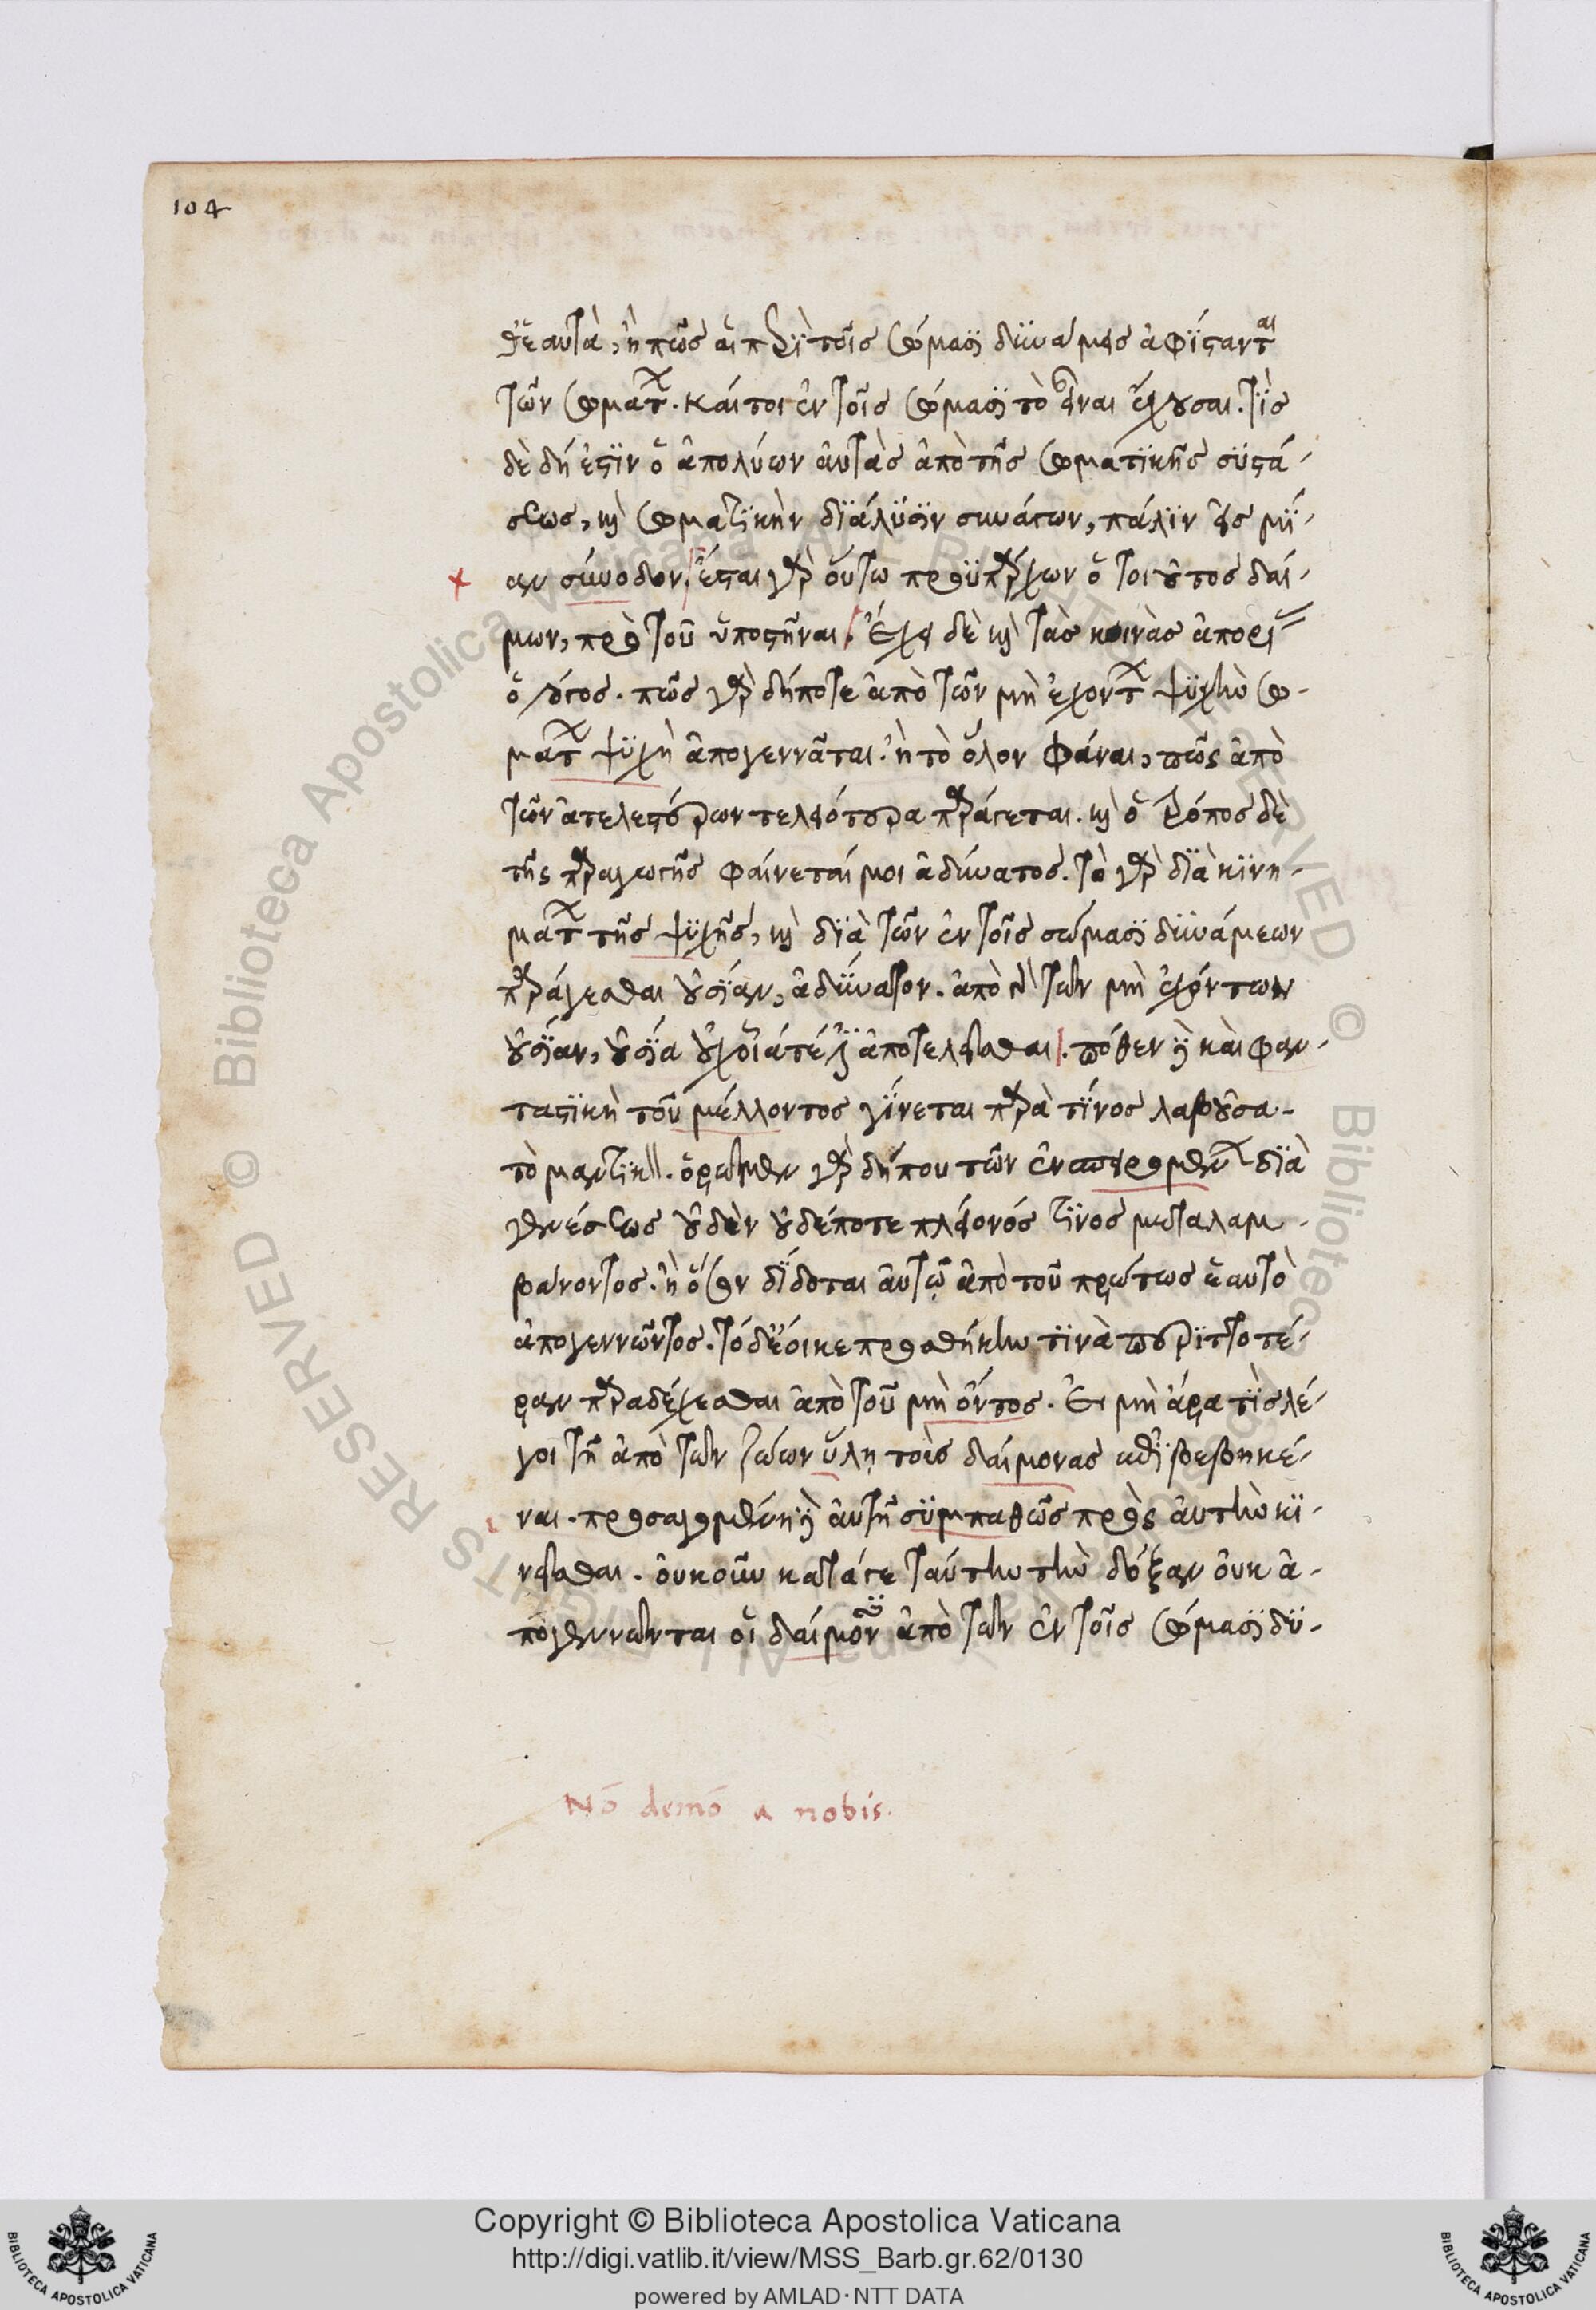 104
θ' ἑαυτὰ, ἢ πῶς αἱ περὶ τοῖς σώμασι δυνάμεις ἀφίστανται
τῶν σωμάτων. καίτοι ἐν τοῖς σώμασι τὸ εἶναι ἔχουσαι. τίς
δὲ δή ἐστιν ὁ ἀπολύων αὐτὰς ἀπὸ τῆς σωματικῆς συστά-
σεως, καὶ σωματικὴν διάλυσιν συνάγων, πάλιν εἰς μί-
αν σύνοδον. ἔσται γὰρ οὕτω προϋπάρχων ὁ τοιοῦτος δαί-
μων, πρὸ τοῦ ὑποστῆναι. Ἔχει δὲ καὶ τὰς κοινὰς ἀπορίας
ὁ λόγος. πῶς γὰρ δήποτε ἀπὸ τῶν μὴ ἐχόντων ψυχὴν σω-
μάτων ψυχὴ ἀπογεννᾶται. ἢ τὸ ὅλον φάναι, πῶς ἀπὸ
τῶν ἀτελεστέρων τελειότερα παράγεται. καὶ ὁ τρόπος δὲ
τῆς παραγωγῆς φαίνεταί μοι ἀδύνατος. τὸ γὰρ διὰ κινη-
μάτων τῆς ψυχῆς, καὶ διὰ τῶν ἐν τοῖς σώμασι δυνάμεων
παράγεσθαι οὐσίαν, ἀδύνατον. ἀπὸ γὰρ τῶν μὴ ἐχόντων
οὐσίαν, οὐσία οὐχ οἷά τέ ἐστι ἀποτελεῖσθαι. πόθεν δὲ καὶ φαν-
ταστικὴ τοῦ μέλλοντος γίνεται παρὰ τίνος λαβοῦσα
τὸ μαντικὸν. ὁρῶμεν γὰρ δήπου τῶν ἐνσπειρομένων διὰ
γενέσεως οὐδὲν οὐδέποτε πλείονός τινος μεταλαμ-
βάνοντος. ἢ ὅσον δίδοται αὐτῷ ἀπὸ τοῦ πρώτως ἑαυτὸ
ἀπογεννῶντος. τὸ δὲ ἔοικε προσθήκην τινὰ περιττοτέ-
ραν παραδέχεσθαι ἀπὸ τοῦ μὴ ὄντος. Εἰ μὴ ἄρα τὶς λέ-
γοι τῇ ἀπὸ τῶν ζώων ὕλῃ τοὺς δαίμονας ἐπιβεβηκέ-
ναι. προσαγομένῃ δὲ αὐτῇ συμπαθῶς πρὸς αὐτὴν κι-
νεῖσθαι. οὐκοῦν κατά γε ταύτην τὴν δόξαν οὐκ ἀ-
πογεννῶνται οἱ δαίμονες ἀπὸ τῶν ἐν τοῖς σώμασι δυ-
Nō demō a nobis.
© Biblioteca Apostolica Vaticana ALL RIGHTS RESERVED
Copyright © Biblioteca Apostolica Vaticana
http://digi.vatlib.it/view/MSS_Barb.gr.62/0130
powered by AMLAD·NTT DATA
BIBLIOTECA APOSTOLICA VATICANA
BIBLIOTECA APOSTOLICA VATICANA